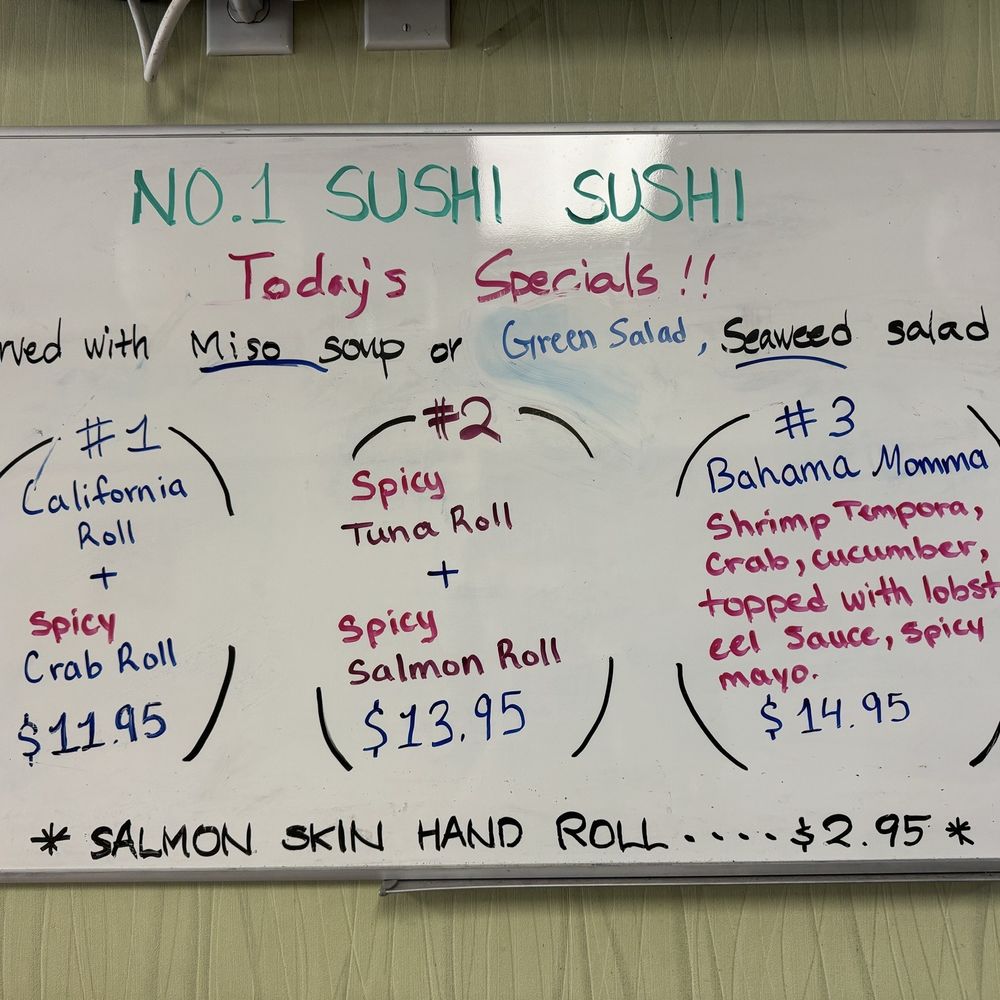 NO.1 SUSHI SUSHI
Today's Specials!!
rved with Miso soup or Green Salad, Seaweed salad
#1
California
Roll
+
Spicy
Crab Roll
$11.95
#2
Spicy
Tuna Roll
+
Spicy
Salmon Roll
$13.95
#3
Bahama Momma
Shrimp Tempora,
Crab, cucumber,
topped with lobst
eel Sauce, spicy
mayo.
$14.95
* SALMON SKIN HAND ROLL.....$2.95 *